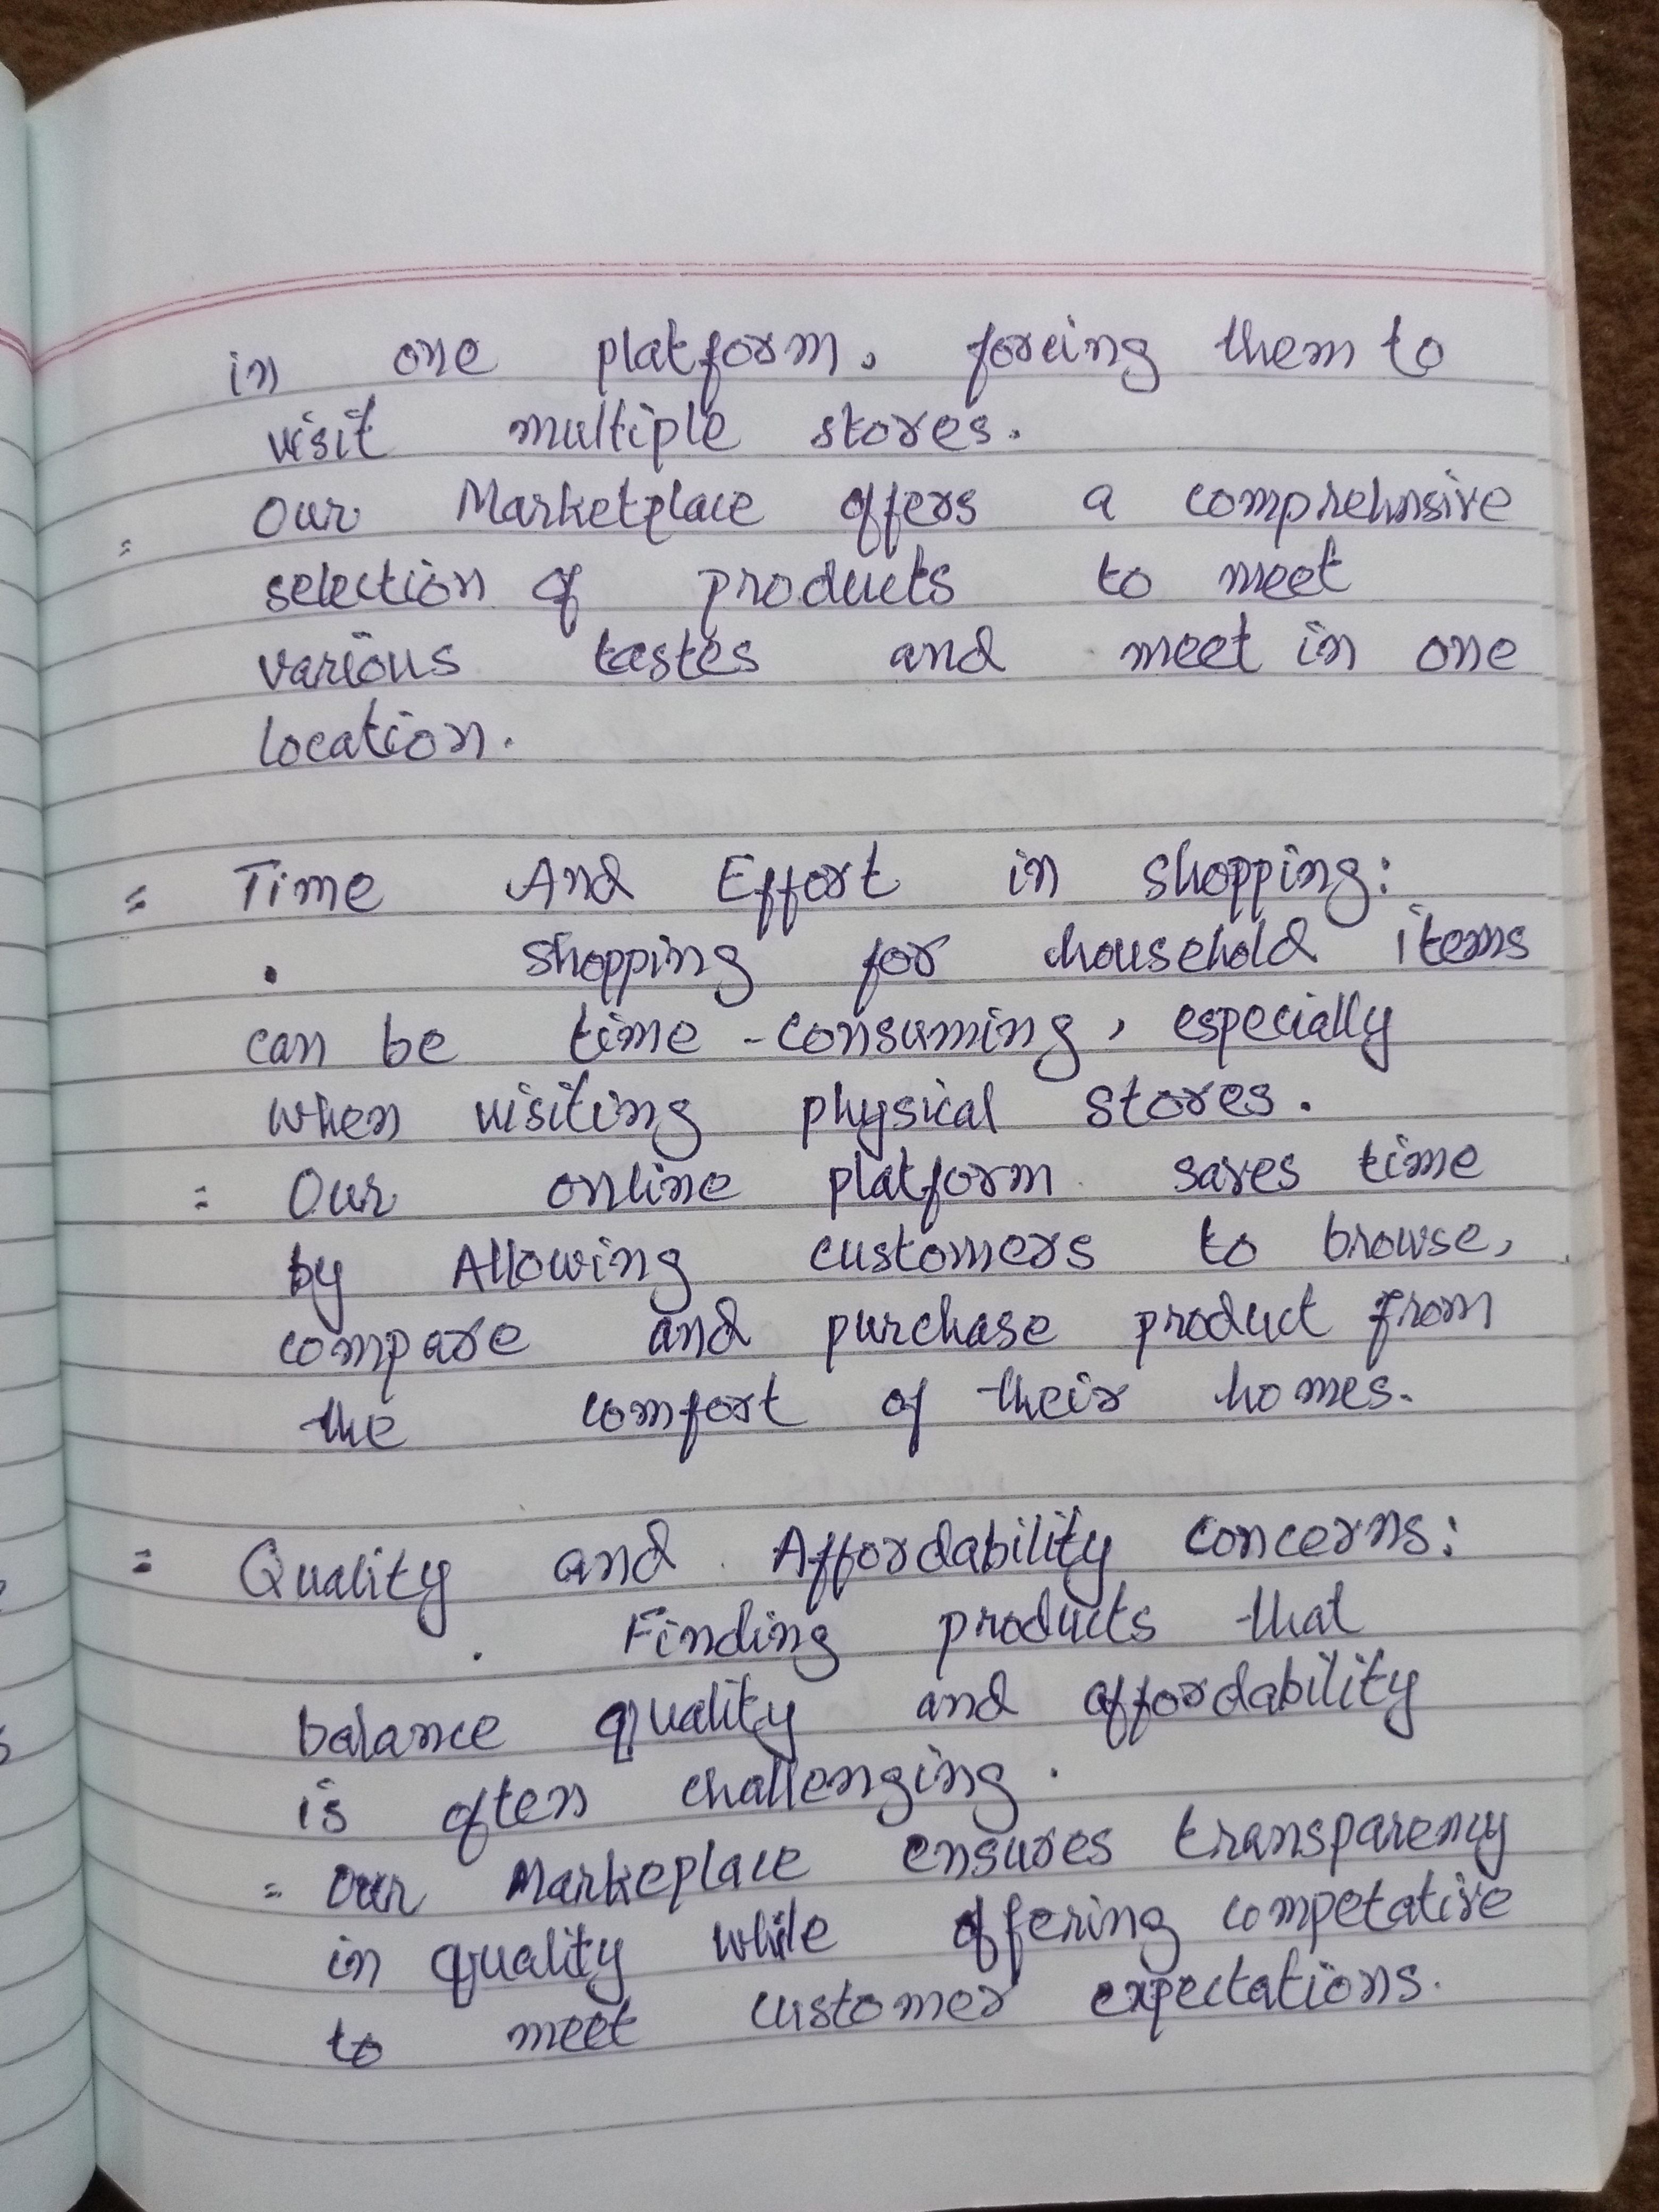 in one platform. forcing them to
visit multiple stores.
= Our Marketplace offers a comprehensive
selection of products to meet
various tastes and meet in one
location.
= Time And Effort in shopping:
. shopping for household items
can be time-consuming, especially
when visiting physical stores.
= Our online platform saves time
by Allowing customers to browse,
compare and purchase product from
the comfort of their homes.
= Quality and Affordability concerns:
. Finding products that
balance quality and affordability
is often challenging.
= Our Markeplace ensures transparency
in quality while offering competative
to meet customer expectations.